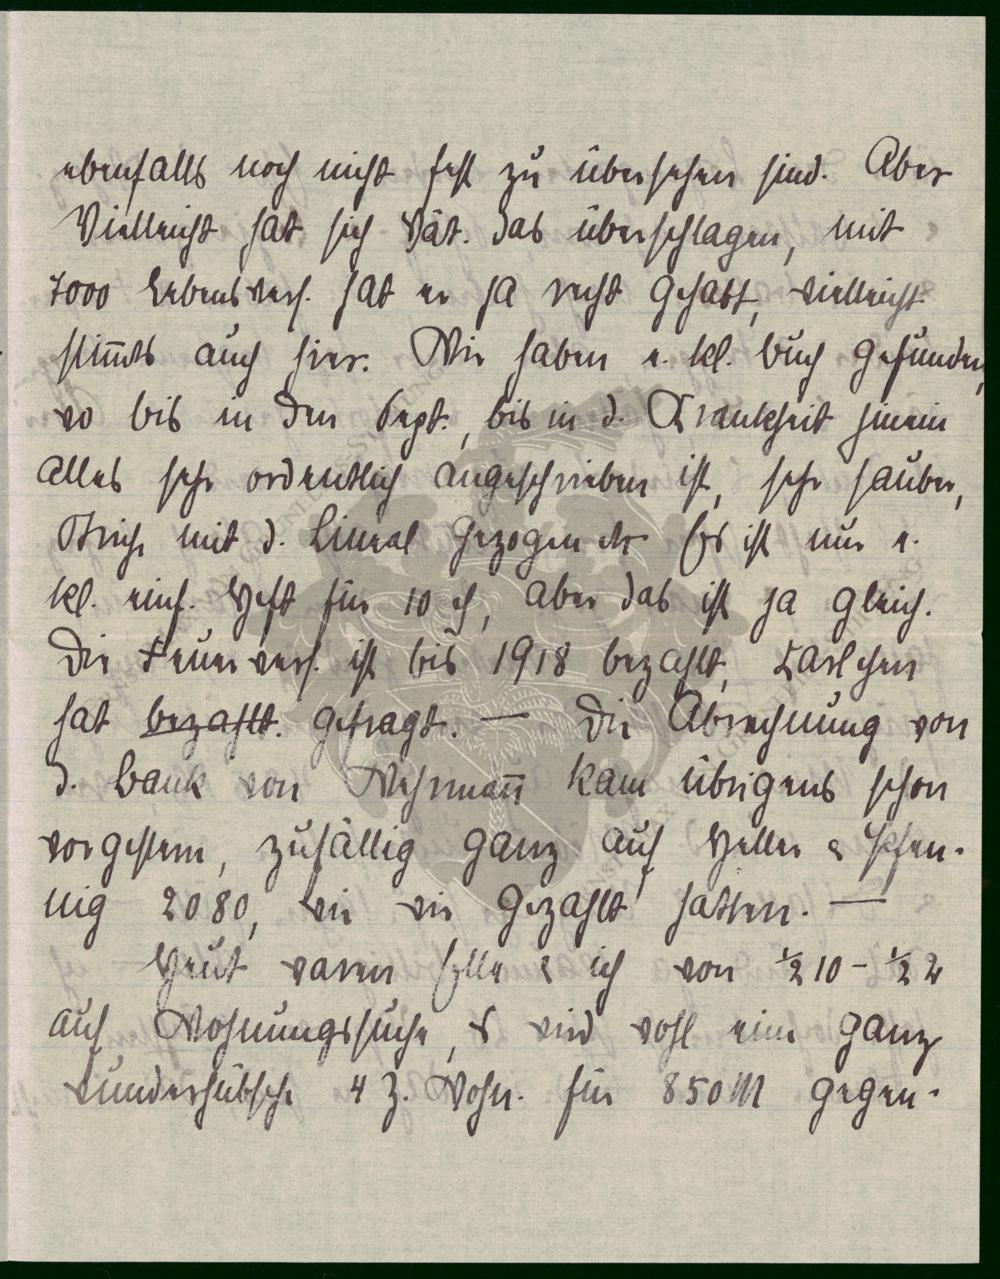 ebenfalls noch nicht fest zu übersehen sind. Aber
Vielleicht hat sich Vat. das überschlagen, mit
7000 Lebensvers. hat er ja recht gehabt, vielleicht
stim̅ts auch hier. Wir haben e. kl. Buch gefunden,
wo bis in den Sept., bis in d. Krankheit hinein
alles sehr ordentlich angeschrieben ist, sehr sauber,
Striche mit d. Lineal gezogen etc Es ist nur e.
kl. einf. Heft für 10 ₰, aber das ist ja gleich.
Die Feuervers. ist bis 1918 bezahlt, Karlchen
hat bezahlt. gefragt. — Die Abrechnung von
d. Bank von Wehrman̅ kam übrigens schon
vorgestern, zufällig ganz auf Heller & Pfen-
nig 2080, wie wir gezahlt hatten. —
Heut waren Elle & ich von ½10 - ½2
auf Wohnungssuche, es wird wohl eine ganz
wunderhübsche 4 Z. Wohn. für 850 M gegen-